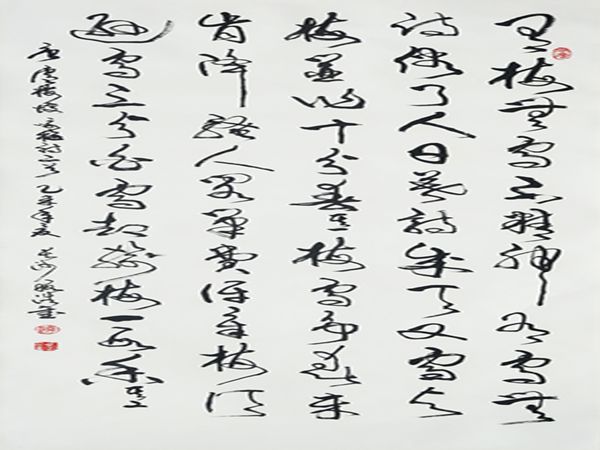 有梅無雪不精神有雪無
詩俗了人日暮詩成天又雪與
梅並作十分春梅雪爭春未
肯降騷人閣筆費評章梅須
遜雪三分白雪却輸梅一段香
盧梅坡詩二首乙亥年夏長沙書